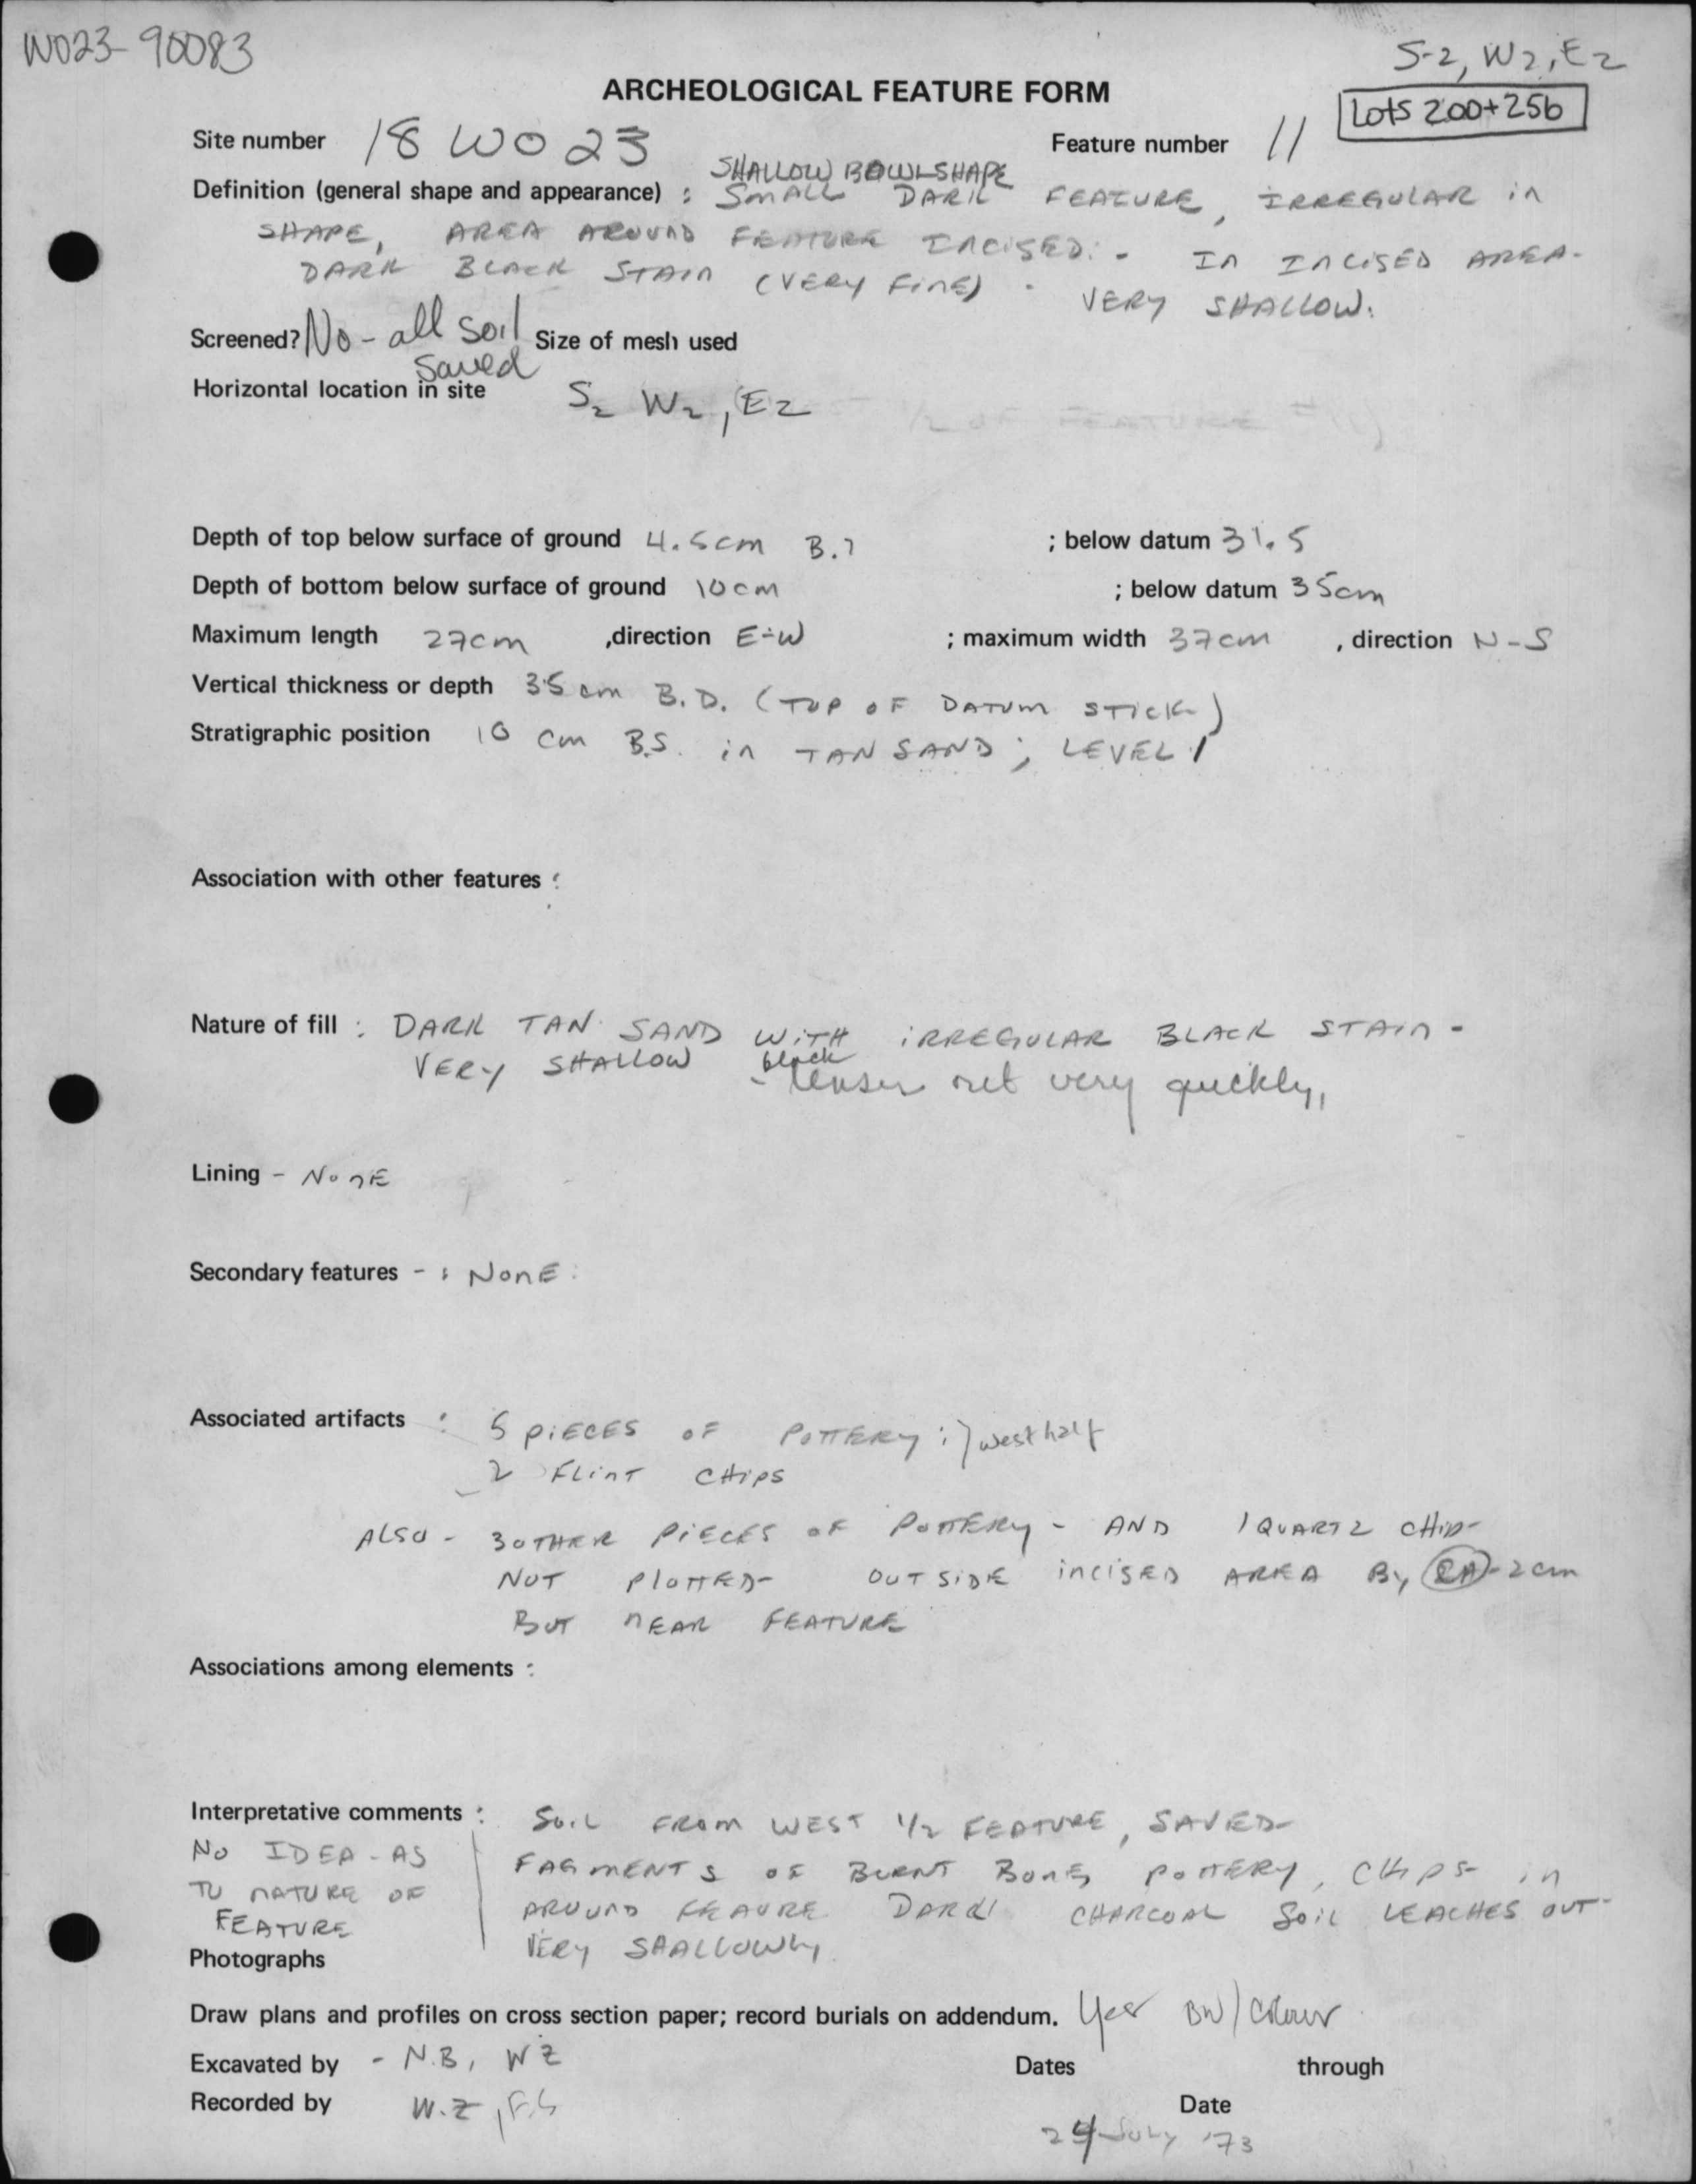 W023-90083
S-2, W2, E2
ARCHEOLOGICAL FEATURE FORM
Lots 200+256
Site number 18 WO 23 Feature number 11
SHALLOW BOWLSHAPE
Definition (general shape and appearance) : SMALL DARK FEATURE, IRREGULAR in
SHAPE, AREA AROUND FEATURE INCISED. - In INCISED AREA-
DARK BLACK STAIN (VERY FINE) . VERY SHALLOW.
Screened? No - all soil Size of mesh used
saved
Horizontal location in site S2 W2, E2 1/2 OF FEATURE #11)
Depth of top below surface of ground 4.5cm B. ; below datum 31.5
Depth of bottom below surface of ground 10cm ; below datum 35cm
Maximum length 27cm ,direction E-W ; maximum width 37cm , direction N-S
Vertical thickness or depth 35 cm B.D. (TOP OF DATUM STICK)
Stratigraphic position 10 cm B.S. in TAN SAND ; LEVEL 1
Association with other features :
Nature of fill : DARK TAN SAND WITH iRREGULAR BLACK STAIN -
VERY SHALLOW - black lenses out very quickly,
Lining - NonE
Secondary features - : NonE :
Associated artifacts : 5 PiECES OF POTTERY ; } west half
2 FLinT CHiPS
ALSO - 3 OTHER PiECES OF POTTERY - AND 1 QUARTZ CHIP-
NOT PlOTTED- OUTSIDE inciSED AREA By -2cm
BUT nEAR FEATURE
Associations among elements :
Interpretative comments : SOIL FROM WEST 1/2 FEATURE, SAVED-
NO IDEA - AS
TO NATURE OF
FEATURE
FAGMENTS OF BURNT BONE, POTTERY, CHIPS in
AROUND FEAURE DARK CHARCOAL SOiL LEACHES OUT-
VERY SHALLOWLY
Photographs
Draw plans and profiles on cross section paper; record burials on addendum. Yes BW/Colour
Excavated by - N.B, WZ Dates through
Recorded by W.Z, F.S Date
24 JULY '73